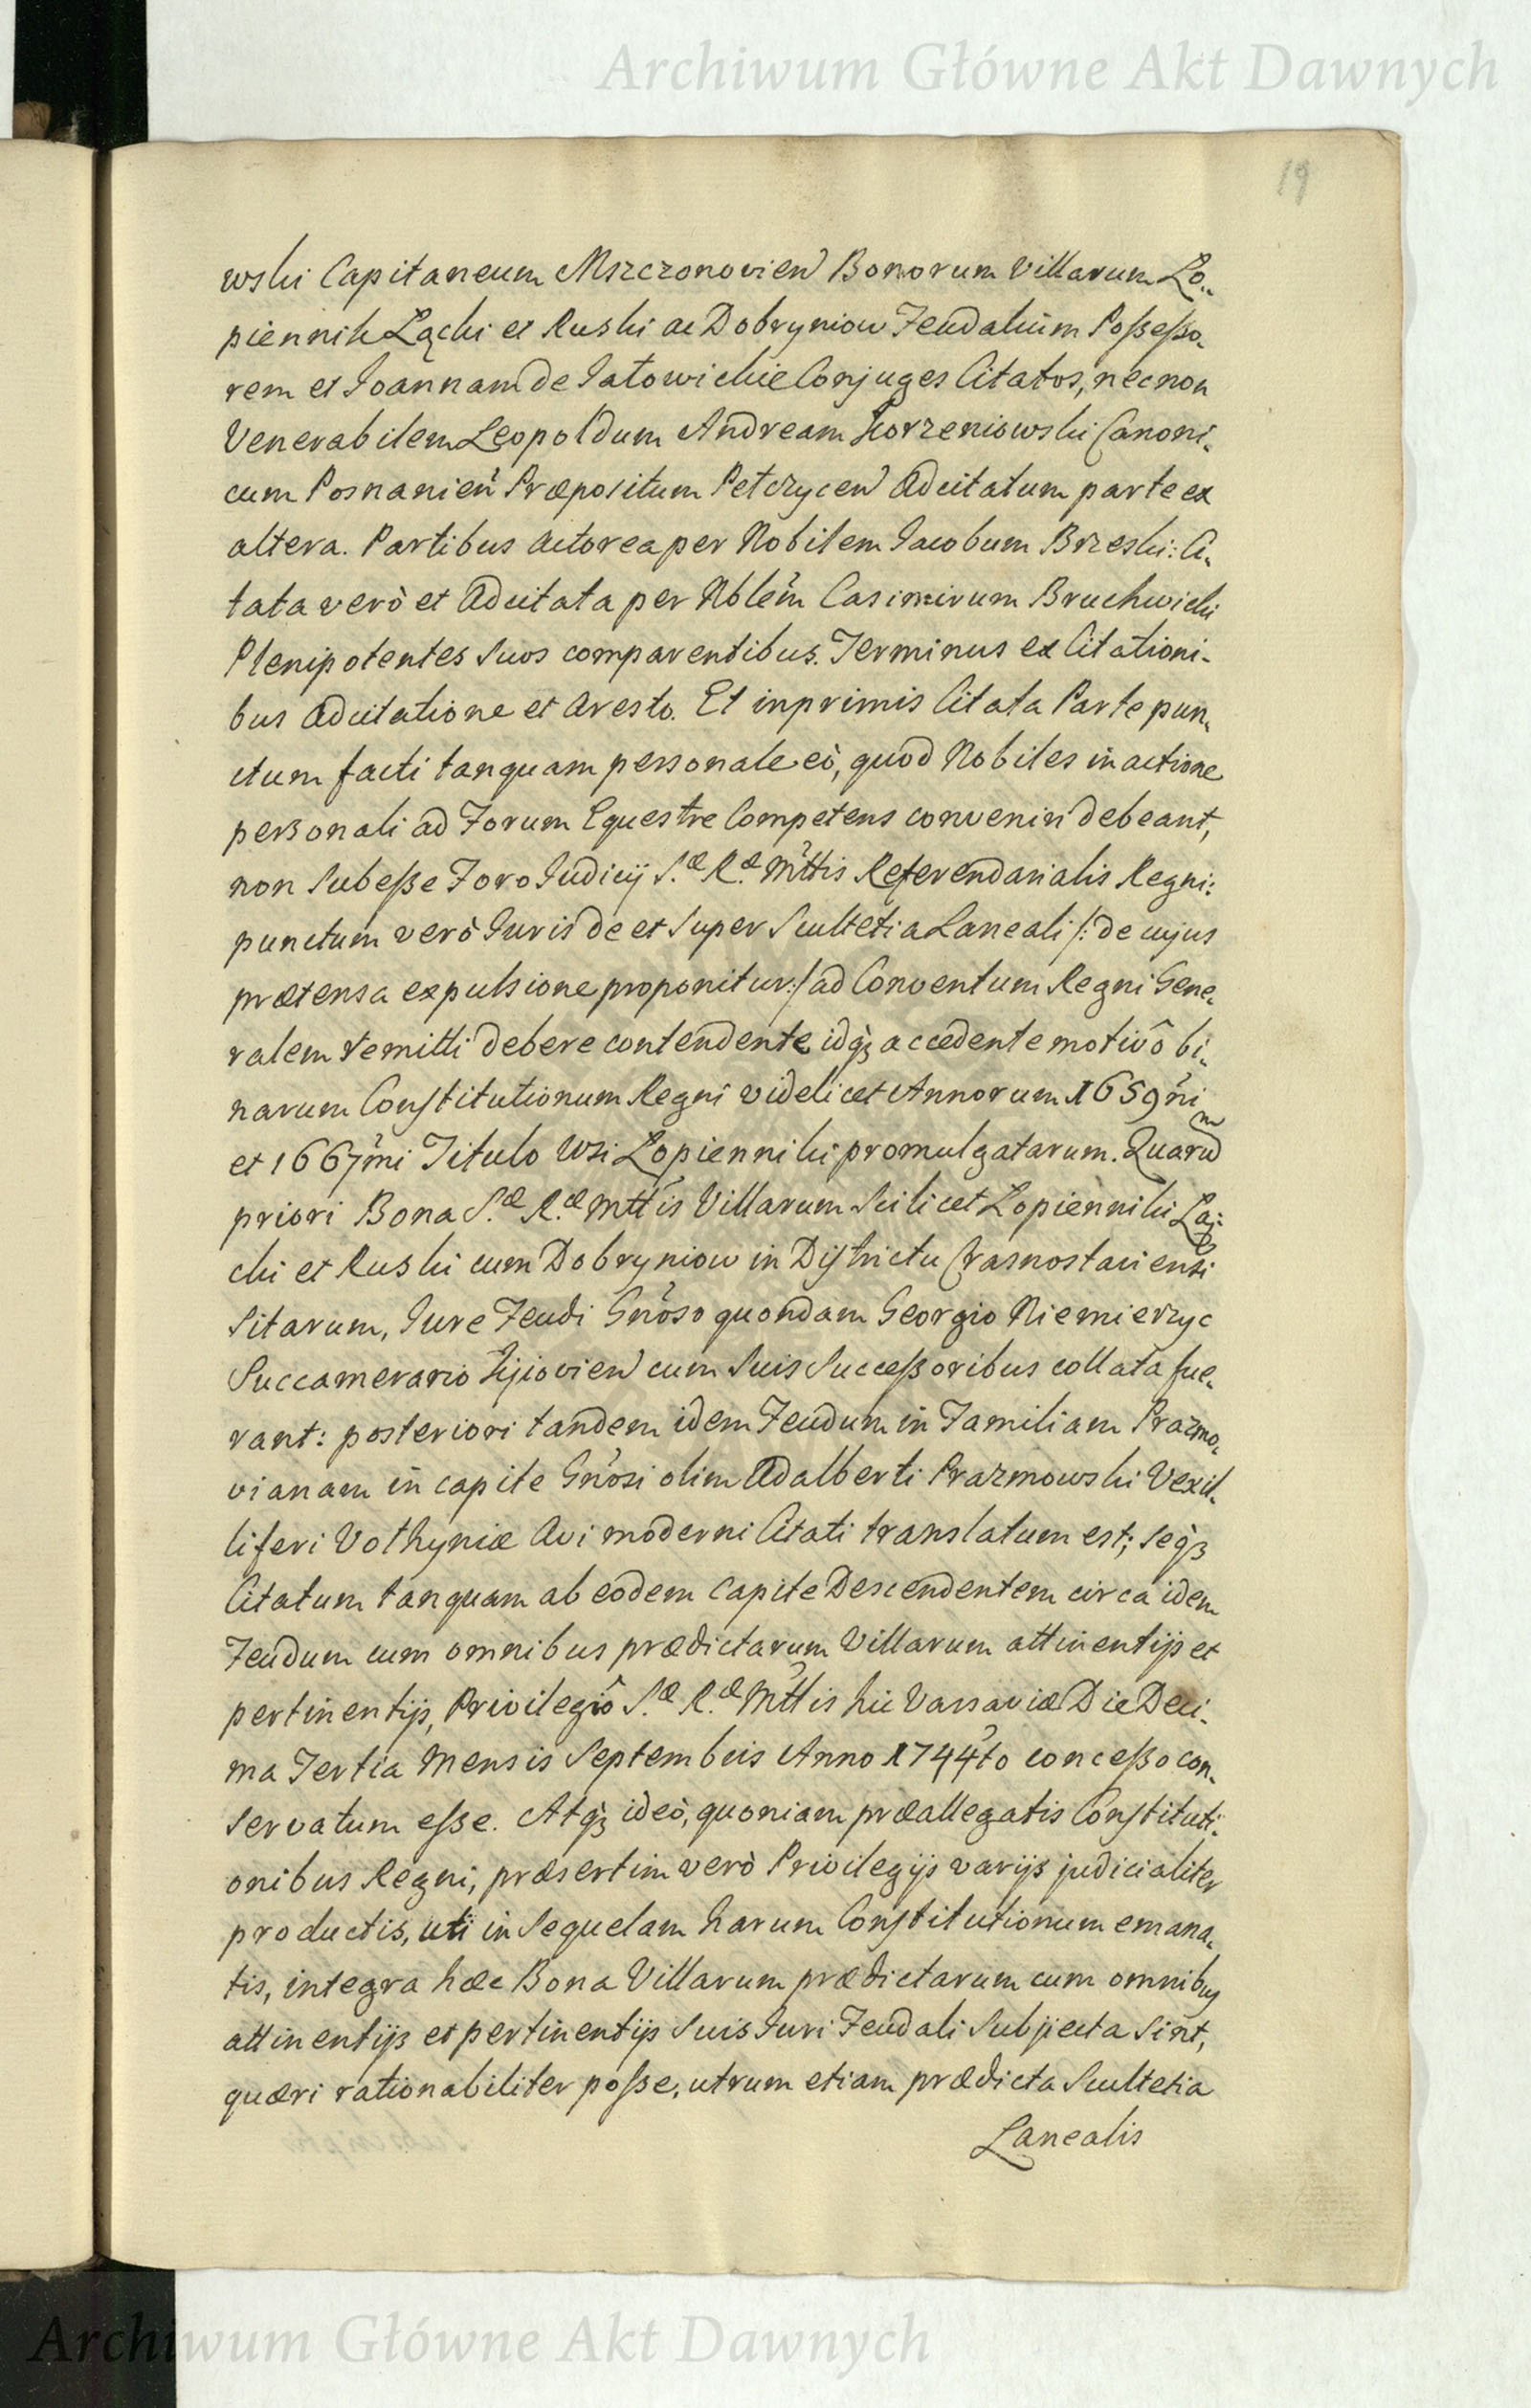 Archiwum Główne Akt Dawnych
19
wski Capitaneum Mszczonovien Bonorum Villarum Lo„
piennik Lącki et Ruski ac Dobryniow Feudalium Poßeßo„
rem et Joannam de Jatowickie Conjuges Citatos, necnon
Venerabilem Leopoldum Andream Korzeniowski Canoni„
cum Posnanien Præpositum Petczycen Adcitatum parte ex
altera. Partibus Actorea per Nobilem Jacobum Brzeski: Ci„
tata verò et Adcitata per Nblem Casimirum Bruchwicki
Plenipotentes suos comparentibus. Terminus ex Citationi-
bus Adcitatione et Aresto. Et inprimis Citata Parte pun„
ctum facti tanquam personale eò, quod Nobiles in actione
personali ad Forum Equestre Competens conveniri debeant,
non subeße Foro Judicij S.æ R.æ Mttis Referendarialis Regni:
punctum verò Juris de et super Scultetia Laneali /: de cujus
prætensa expulsione proponitur:/ ad Conventum Regni Gene„
ralem remitti debere contendente, idq3 accedente motivô bi„
narum Constitutionum Regni videlicet Annorum 1659ni
et 1667mi Titulo Wsi Lopienniki promulgatarum. Quarum
priori Bona S.æ R.æ Mttis Villarum scilicet Lopienniki Ląc„
cki et Ruski cum Dobryniow in Districtu Crasnostaviensi
sitarum, Jure Feudi Gnoso quondam Georgio Niemierzyc
Succamerario Kijovien cum suis Succeßoribus collata fue„
rant: posteriori tandem idem Feudum in Familiam Prazmo„
vianam in capite Gnosi olim Adalberti Prazmowski Vexil„
liferi Volhyniæ Avi moderni Citati translatum est; seq3
Citatum tanquam ab eodem Capite Descendentem circa idem
Feudum cum omnibus prædictarum Villarum attinentijs et
pertinentijs, Privilegiô S.æ R.æ Mttis hic Varsaviæ Die Deci„
ma Tertia Mensis Septembris Anno 1744to conceßo con„
servatum eße. Atq3 ideò, quoniam præallegatis Constituti„
onibus Regni, præsertim verò Privilegijs varijs judicialiter
productis, uti in sequelam harum Constitutionum emana„
tis, integra hæc Bona Villarum prædictarum cum omnibus
attinentijs et pertinentijs suis Juri Feudali subjecta sint,
quæri rationabiliter poße, utrum etiam prædicta Scultetia
Lanealis
Archiwum Główne Akt Dawnych